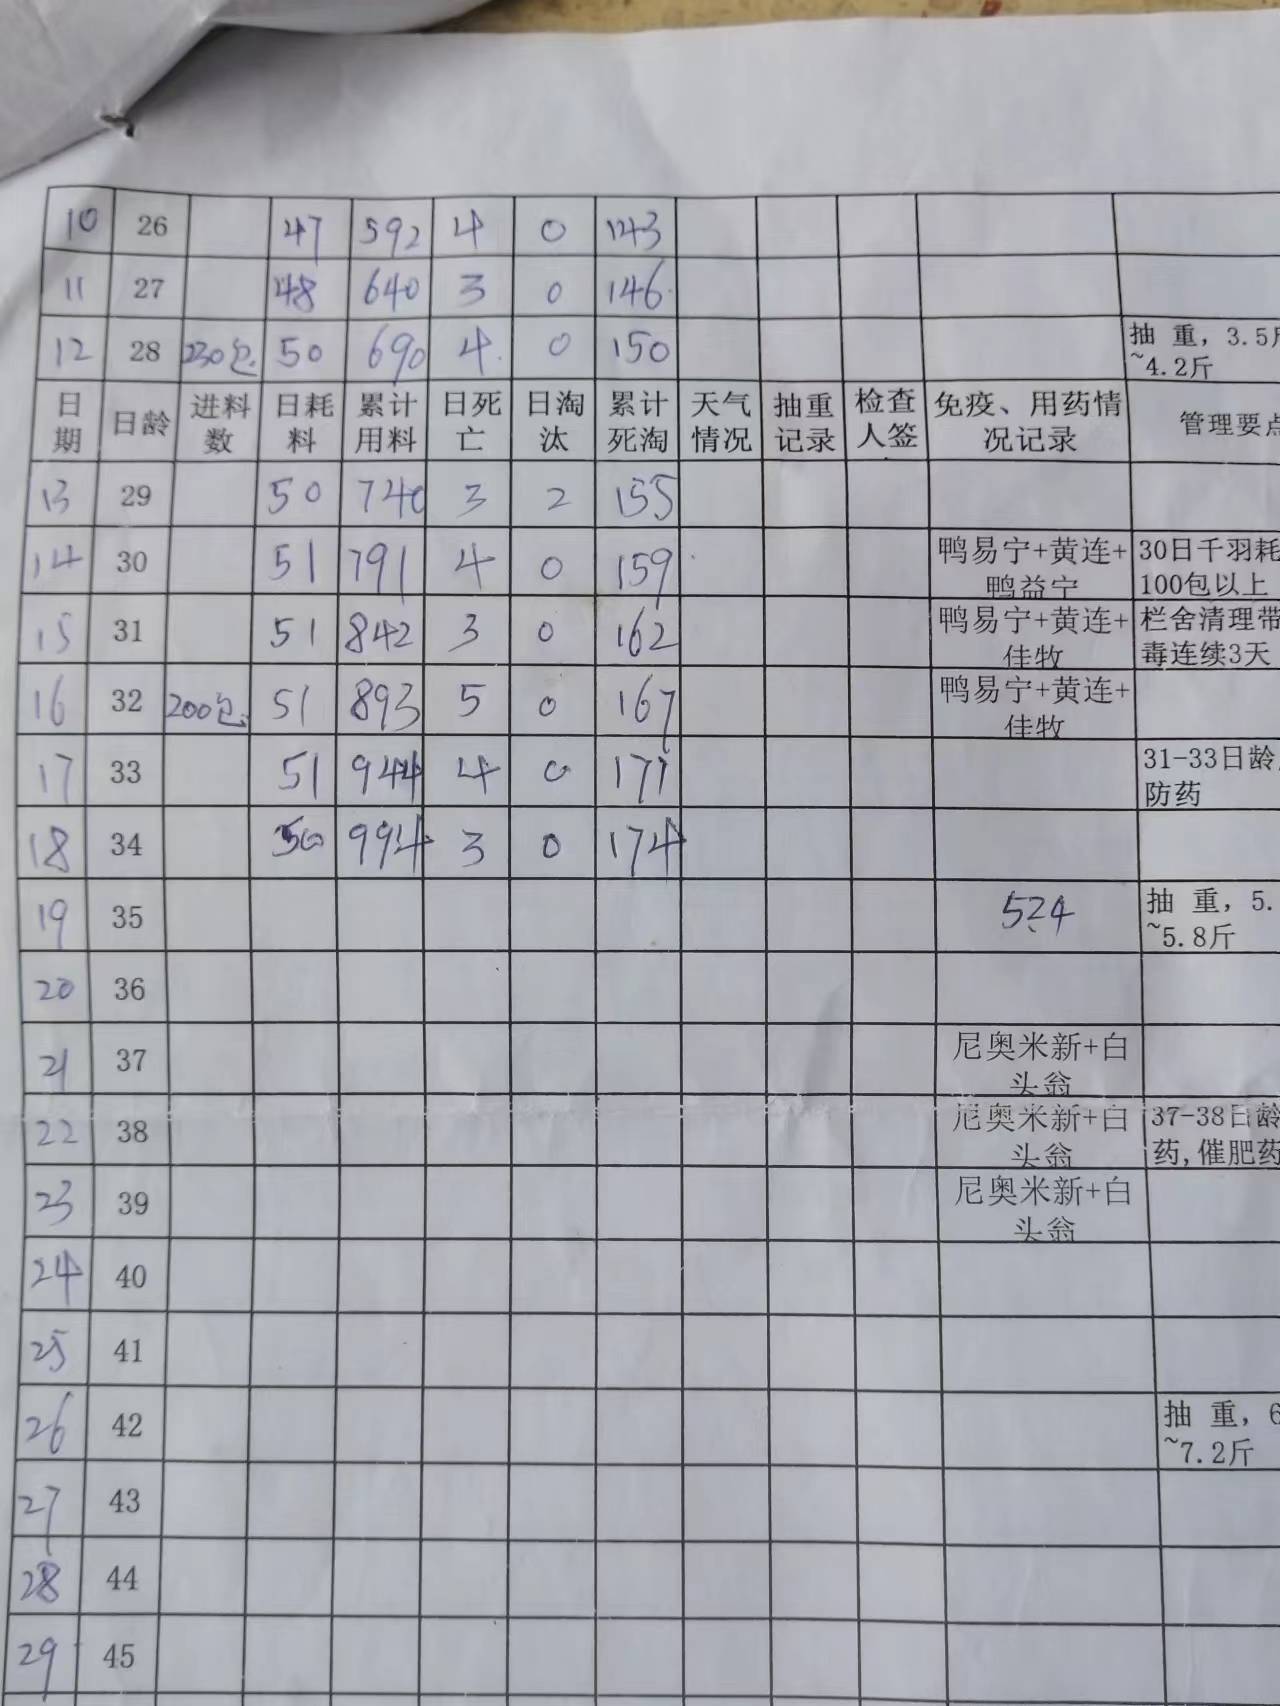 10 26 47 592 4 0 143
11 27 48 640 3 0 146
12 28 230包 50 690 4 0 150 抽 重，3.5斤
~4.2斤
日期 日龄 进料数 日耗料 累计用料 日死亡 日淘汰 累计死淘 天气情况 抽重记录 检查人签 免疫、用药情况记录 管理要点
13 29 50 740 3 2 155
14 30 51 791 4 0 159 鸭易宁+黄连+ 30日千羽耗
鸭益宁 100包以上
15 31 51 842 3 0 162 鸭易宁+黄连+ 栏舍清理带
佳牧 毒连续3天
16 32 200包 51 893 5 0 167 鸭易宁+黄连+
佳牧
17 33 51 944 4 0 171 31-33日龄
防药
18 34 50 994 3 0 174
19 35 524 抽 重，5.
~5.8斤
20 36
21 37 尼奥米新+白
头翁
22 38 尼奥米新+白 37-38日龄
头翁 药,催肥药
23 39 尼奥米新+白
头翁
24 40
25 41
26 42 抽 重，6
~7.2斤
27 43
28 44
29 45